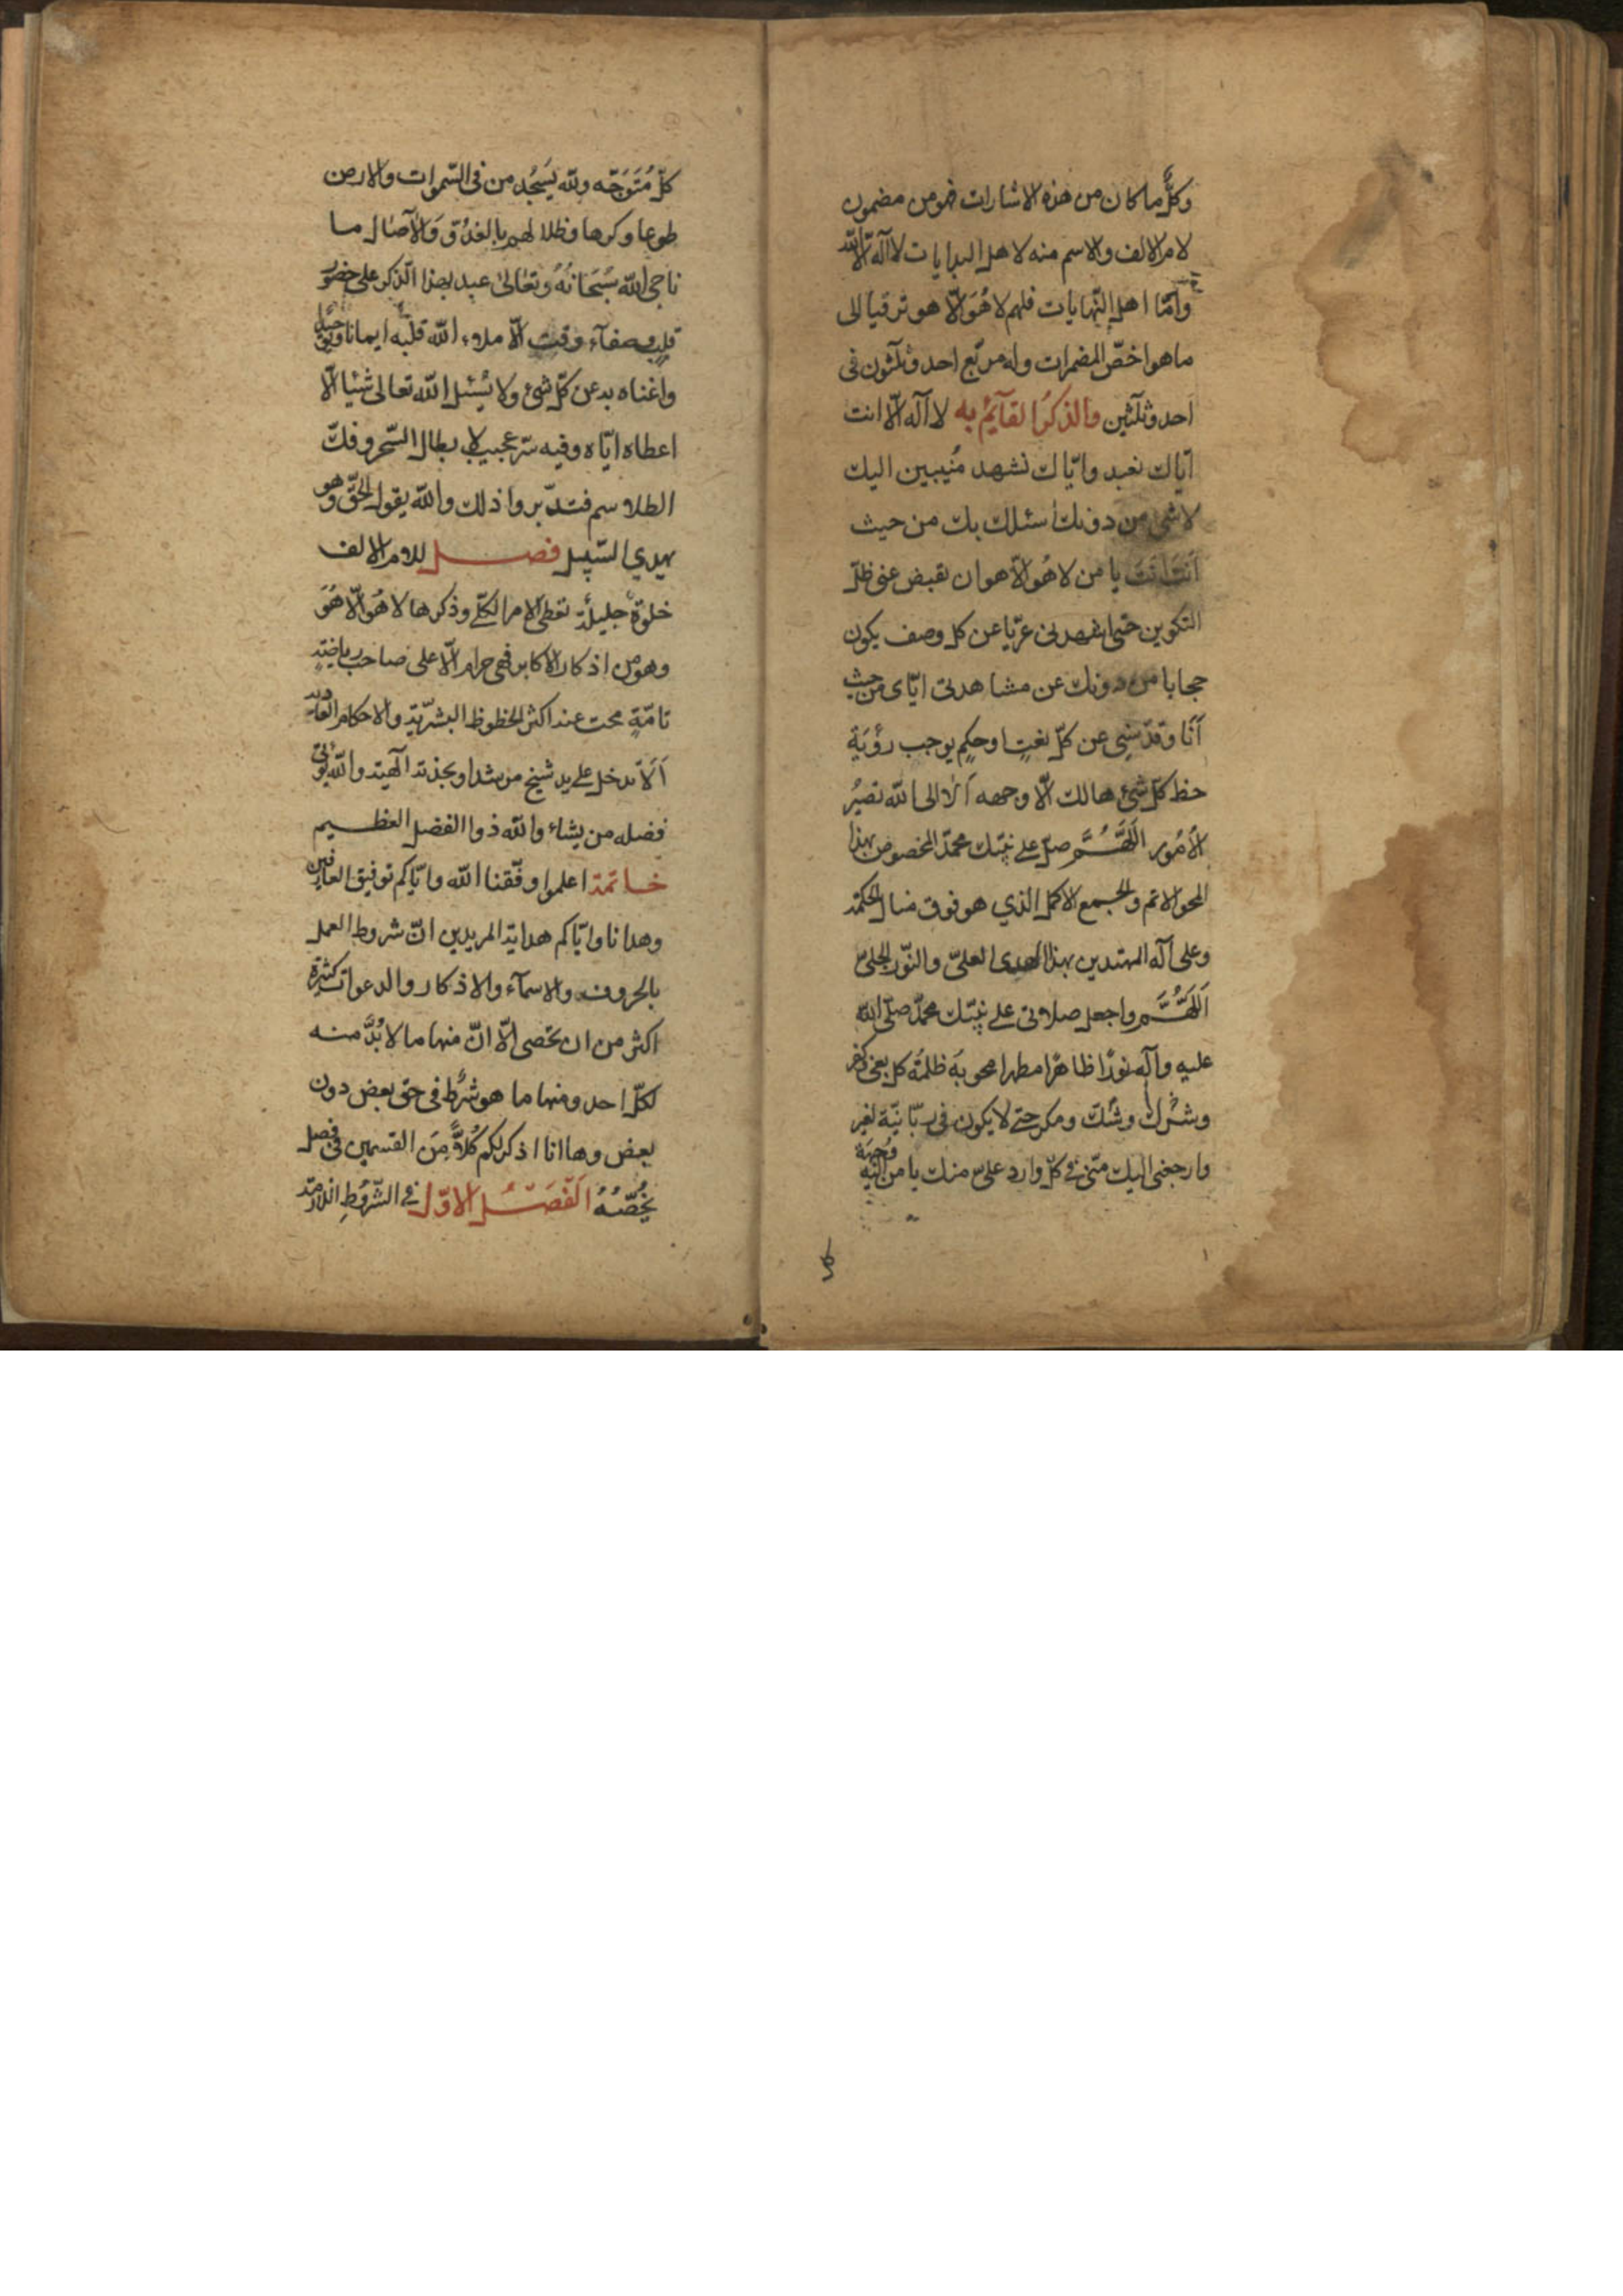 وكلّ ما كان من هذه الاشارات فهو من مضمون
لام الالف والاسم منه لاهل البدايات لا اله الا الله
وامّا اهل النّهايات فلهم لا هُوَ الّا هو ترقيا الى
ما هو اخصّ المضمرات وله مربّع احد وثلثون فى
احد وثلثين والذكرُ القآيمُ به لا اله الّا انت
ايّاك نعبد وايّاك نشهد مُنيبين اليك
لا شئ من دونك اسئلك بك من حيث
اَنتَ اَنتَ يا من لا هُو الّا هو ان تقبض عنى ظلّ
التكوين حتى اشهدنى عريّا عن كل وصف يكون
حجابا من دونك عن مشاهدتى ايّاى من حيث
اَنَا وقدّسنى عن كلّ نعتٍ اوحكمٍ يوجب رؤيَة
حظ كلّ شئ هالك الّا وجهه اَلا الى الله تصيرُ
الاُمُور اَللّهُمَّ صلّ على نبيّك محمّد المخصوص بهذا
المحو الاتم والجمع الاكمل الذي هو فوق منال الحكمة
وعلى آله المهتدين بهذا الهدى العلىّ والنّور الجلىّ
اَللّهُمَّ واجعل صلاوتى على نبيّك محمّد صلّى الله
عليه وآله نورًا ظاهرًا مطهرا محو به ظلمةُ كل بغى كفر
وشرك وشكّ ومكر حتى لا يكون فى ربّانيّة لغير
وارجعنى اليك منّى فى كلّ وارد علىّ منك يا من اليه وُجهَة
كلّ مُتَوَجّه ولله يَسجُد من فى السّموات والارض
طوعا وكرها وظلالهم بالغدُوّ وَالآصَال ما
ناجى الله سُبحَانَهُ وَتعَالىٰ عبد بهذا الذكر على حضور
قلب وصفآء وقت الّا ملاء الله قلبه ايمانا
واغناه به عن كلّ شئ ولا يُسئل الله تعالى شئيا الّا
اعطاه ايّاه وفيه سرّ عجيب لابطال السّحر وفكّ
الطلاسم فتدّبروا ذلك والله يقول الحقّ وهو
يهدي السّبيل فصل للام الالف
خلوة جليلة تعطى الامر الكلّى وذكرها لا هُوَ الّا هُوَ
وهو من اذكار الاكابر فهى حرام الّا على صاحب رياضةٍ
تامّةٍ محت عنه اكثر الحظوظ البشرّية والاحكام العاديه
اَلَا تدخل على يد شيخ مرشد او بجذبة الٓهية والله يُؤتى
فضله من يشاء والله ذوا الفضل العظيم
خاتمة اعلموا وفّقنا الله وايّاكم توفيق العارفين
وهدانا وايّاكم هداية المريدين انّ شروط العمل
بالحروف والاسمآء والاذكار والدعوات كثيرة
اكثر من ان تحصى الّا انّ منها ما لا بُدَّ منه
لكلّ احد ومنها ما هو شرُط فى حق بعض دون
بعض وها انا اذكر لكم كُلاًّ مِنَ القسمين فى فصل
يَخُصُّهُ اَلفَصلُ الاوّل فى الشّرُوطِ اللازمة